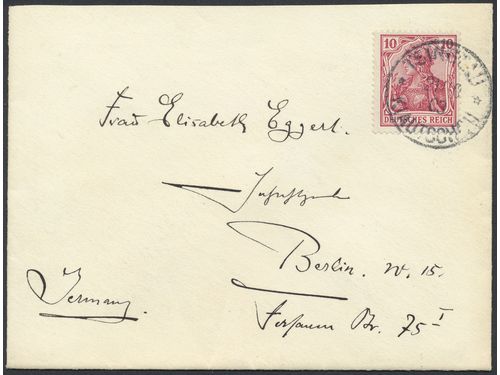 10 10
DEUTSCHES REICH
TSINGTAU
Frau Elisabeth Eggert.
Berlin. W. 15.
Germany.
Str. 75 I